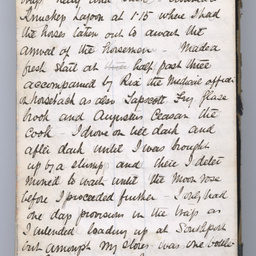 Knuckey Lagoon at 1.15 where I had
the horses taken out to await the
arrival of the horsemen - Made a
fresh start at half past three
accompanied by Rix the Mechanic officer
on horseback as also Lapscott Fry Glaze
brook and Augustin Ceasan the
Cook I drove on till dark and
after dark until I was brought
up by a stump and there I deter
mined to wait until the Moon rose
before I proceeded further - I only had
one day provision in the trap as
I intended loading up at Southport
but amongst my stores was one bottle